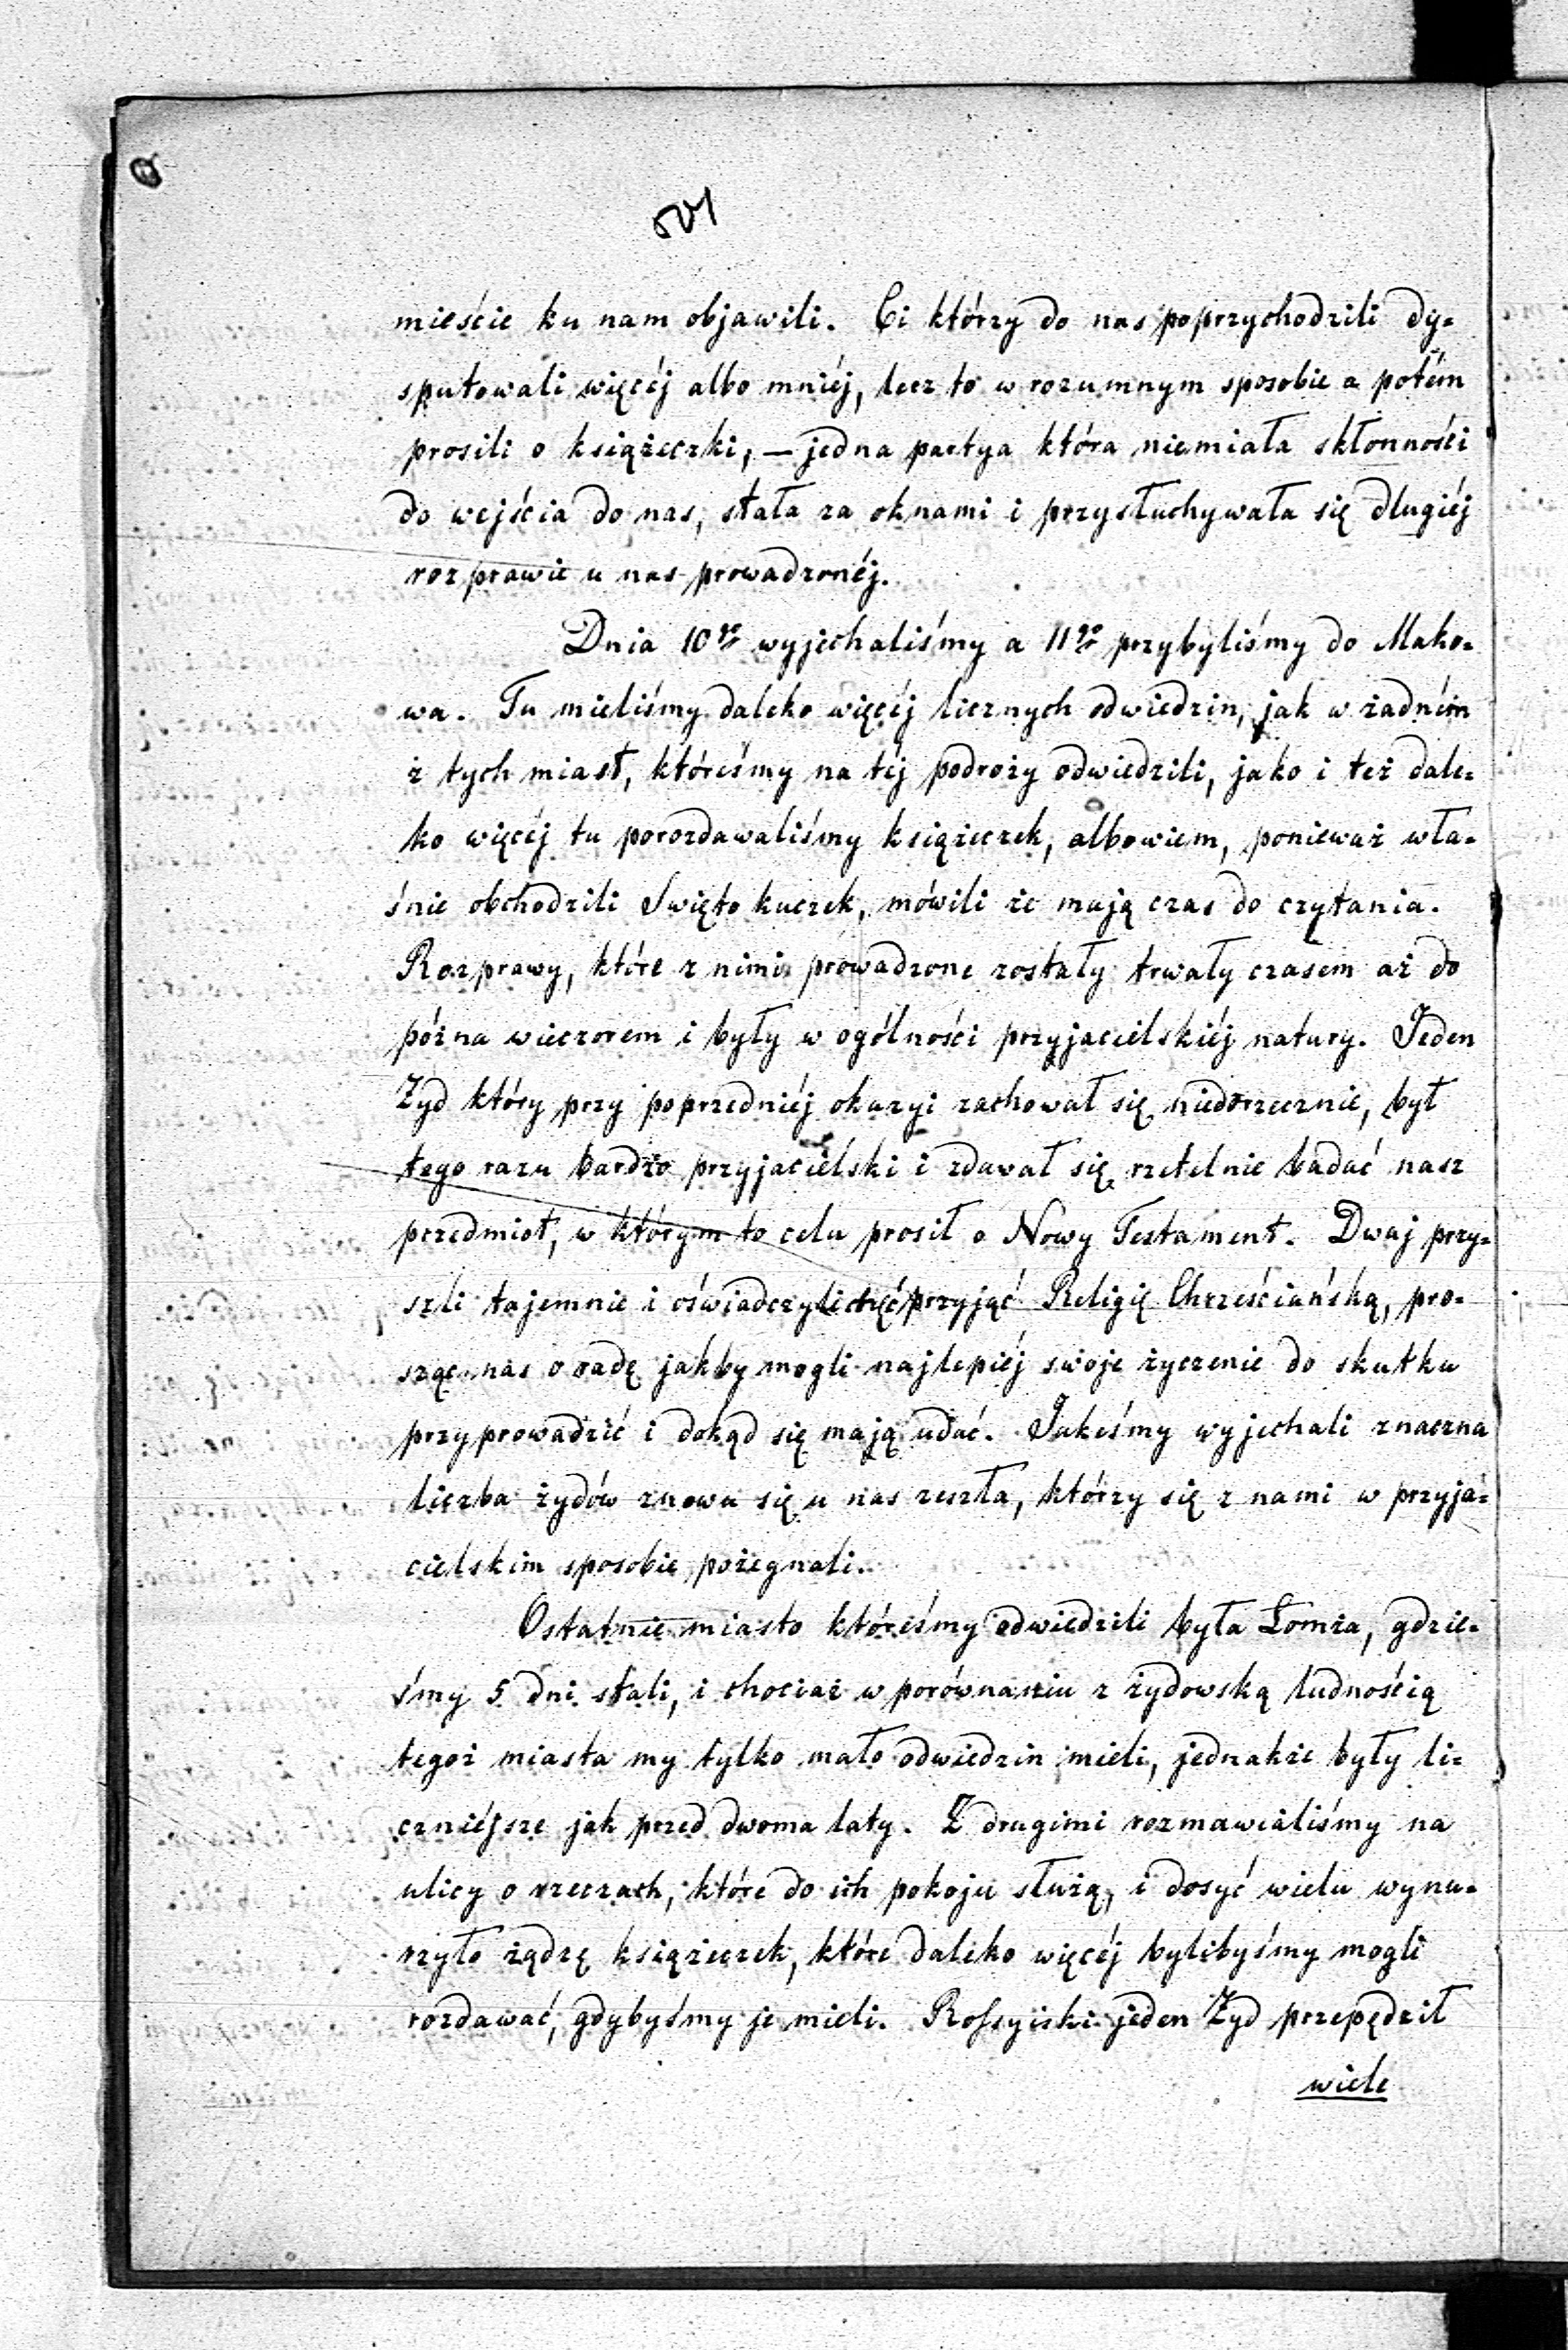 mieście ku nam objawili. Ci którzy do nas poprzychodzili dy-
sputowali więcéj albo mniéj, lecz to w rozumnym sposobie a potém
prosili o książeczki, — jedna partya która niemiała skłonności
do wejścia do nas, stała za oknami i przysłuchywała się długiéj
rozprawie u nas prowadzonéj.
Dnia 10go wyjechaliśmy a 11go przybyliśmy do Mako-
wa. Tu mieliśmy daleko więcéj licznych odwiedzin, jak w żadném
z tych miast, któreśmy na téj podroży odwiedzili, jako i też dale-
ko więcéj tu porozdawaliśmy książeczek, albowiem, ponieważ wła-
śnie obchodzili Swięto kuczek, mówili że mają czas do czytania.
Rozprawy, które z nimi prowadzone zostały trwały czasem aż do
późna wieczorem i były w ogólności przyjacielskiéj natury. Jeden
Żyd który przy poprzedniéj okazyi zachował się niedorzecznie, był
tego razu bardzo przyjacielski i zdawał się rzetelnie badać nasz
przedmiot, w którym to celu prosił o Nowy Testament. Dwaj przy-
szli tajemnie i oświadczyli chęć przyjąć Religię Chrześciańską, pro-
sząc nas o radę jakby mogli najlepiéj swoje życzenie do skutku
przyprowadzić i dokąd się mają udać. Jakeśmy wyjechali znaczna
liczba żydów znowu się u nas zeszła, którzy się z nami w przyja-
cielskim sposobie pożegnali.
Ostatnie miasto któreśmy odwiedzili była Łomża, gdzie-
śmy 5 dni stali, i chociaż w porównaniu z żydowską ludnością
tegoż miasta my tylko mało odwiedzin mieli, jednakże były li-
czniéjsze jak przed dwoma laty. Z drugimi rozmawialiśmy na
ulicy o rzeczach, które do ich pokoju służą, i dosyć wielu wynu-
rzyło żądzę książeczek, które daleko więcéj bylibyśmy mogli
rozdawać, gdybyśmy je mieli. Rossyiski jeden Żyd przepędził
wiele